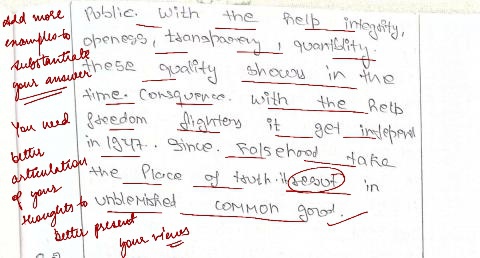 Add more
examples to
substantiate
your answer
You need
better
articulation
of your
thoughts to
better present
your views
Public. With the help integrity,
openess, transparency, quantidity.
these quality shows in the
time. Consquence. With the help
freedom flighters it get indepent
in 1947. Since. Falsehood take
the Place of truth. it resout in
unblemished common good.